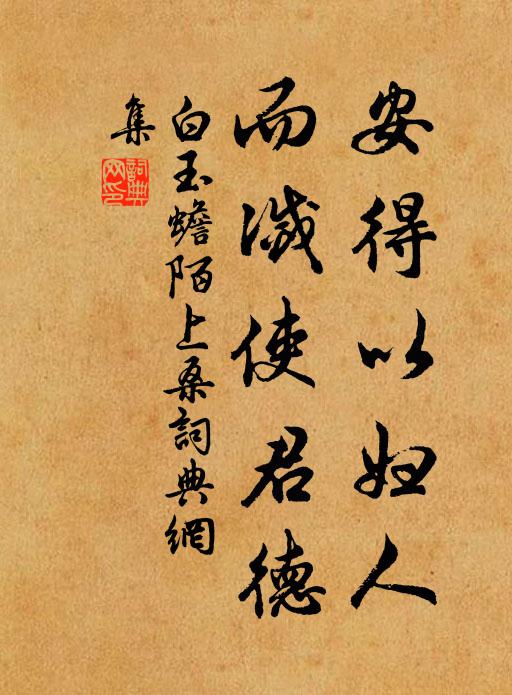 安得以妇人
而减使君德
白玉蟾陌上桑詞典網
集
詞典
网印